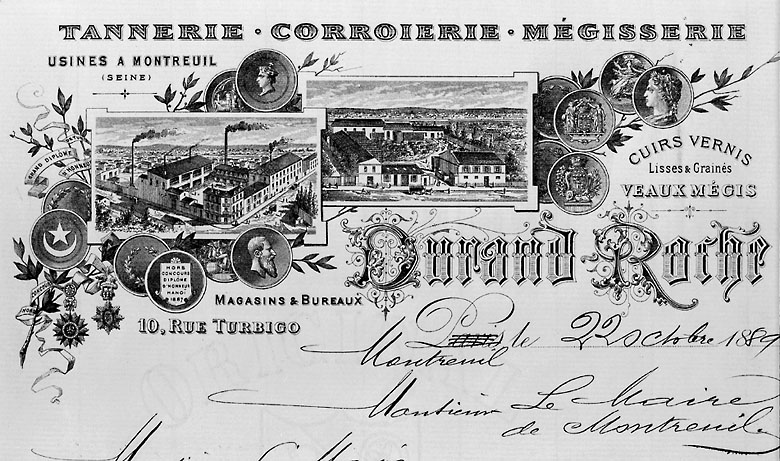 TANNERIE · CORROIERIE · MÉGISSERIE
USINES A MONTREUIL
(SEINE)
GRAND DIPLÔME
D'HONNEUR
CUIRS VERNIS
LISSES & GRAINÉS
VEAUX MÉGIS
HORS
CONCOURS
DIPLÔME
D'HONNEUR
HANOÏ
1887
Durand Roche
MAGASINS & BUREAUX
10, RUE TURBIGO
Paris le 22 octobre 1889
Montreuil
Monsieur Le Maire
de Montreuil
Monsieur le Maire